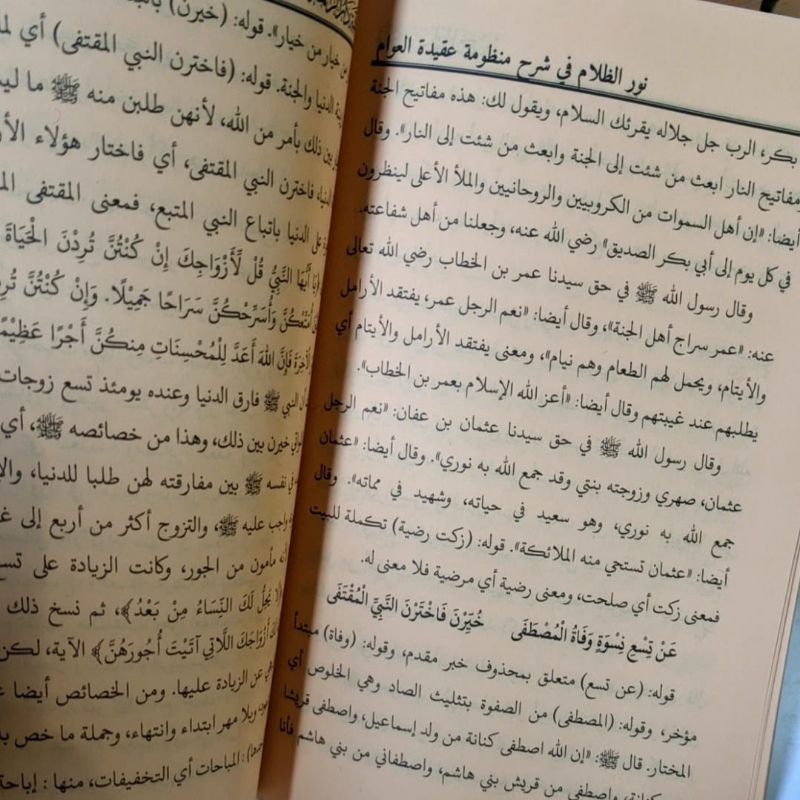 نور الظلام في شرح منظومة عقيدة العوام
بكر، الرب جل جلاله يقرئك السلام، ويقول لك: هذه مفاتيح الجنة
مفاتيح النار ابعث من شئت إلى الجنة وابعث من شئت إلى النار». وقال
أيضا: «إن أهل السموات من الكروبيين والروحانيين والملأ الأعلى لينظرون
في كل يوم إلى أبي بكر الصديق» رضي الله عنه، وجعلنا من أهل شفاعته.
وقال رسول الله ﷺ في حق سيدنا عمر بن الخطاب رضي الله تعالى
عنه: «عمر سراج أهل الجنة»، وقال أيضا: «نعم الرجل عمر، يفتقد الأرامل
والأيتام، ويحمل لهم الطعام وهم نيام»، ومعنى يفتقد الأرامل والأيتام أي
يطلبهم عند غيبتهم وقال أيضا: «أعز الله الإسلام بعمر بن الخطاب».
وقال رسول الله ﷺ في حق سيدنا عثمان بن عفان: «نعم الرجل
عثمان، صهري وزوجته بنتي وقد جمع الله به نوري». وقال أيضا: «عثمان
جمع الله به نوري، وهو سعيد في حياته، وشهيد في مماته». وقال
أيضا: «عثمان تستحي منه الملائكة». قوله: (زكت رضية) تكملة للبيت
فمعنى زكت أي صلحت، ومعنى رضية أي مرضية فلا معنى له.
عَنْ تِسْعِ نِسْوَةٍ وَفَاةُ الْمُصْطَفَى خُيِّرْنَ فَاخْتَرْنَ النَّبِيَّ الْمُقْتَفَى
قوله: (عن تسع) متعلق بمحذوف خبر مقدم، وقوله: (وفاة) مبتدأ
مؤخر، وقوله: (المصطفى) من الصفوة بتثليث الصاد وهي الخلوص أي
المختار. قال ﷺ: «إن الله اصطفى كنانة من ولد إسماعيل، واصطفى قريشا
كنانة، واصطفى من قريش بني هاشم، واصطفاني من بني هاشم فأنا
من خيار من خيار». قوله: (خيرن)
الدنيا والجنة. قوله: (فاخترن النبي المقتفى) أي
بين ذلك بأمر من الله، لأنهن طلبن منه ﷺ ما
فاخترن النبي المقتفى، أي فاختار هؤلاء
على الدنيا باتباع النبي المتبع، فمعنى المقتفى
أَيُّهَا النَّبِيُّ قُلْ لِّأَزْوَاجِكَ إِنْ كُنْتُنَّ تُرِدْنَ الْحَيَاةَ
أُمَتِّعْكُنَّ وَأُسَرِّحْكُنَّ سَرَاحًا جَمِيْلًا. وَإِنْ كُنْتُنَّ
فَإِنَّ اللهَ أَعَدَّ لِلْمُحْسِنَاتِ مِنكُنَّ أَجْرًا عَظِيْمًا
النبي ﷺ فارق الدنيا وعنده يومئذ تسع زوجات
خيرن بين ذلك، وهذا من خصائصه ﷺ، أي
في نفسه ﷺ بين مفارقته لهن طلبا للدنيا،
واجب عليه ﷺ، والتزوج أكثر من أربع إلى
مأمون من الجور، وكانت الزيادة على
يَحِلُّ لَكَ النِّسَاءُ مِنْ بَعْدُ﴾، ثم نسخ ذلك
أَزْوَاجَكَ اللَّاتِي آتَيْتَ أُجُورَهُنَّ﴾ الآية، لكن
عن الزيادة عليها. ومن الخصائص أيضا
وبلا مهر ابتداء وانتهاء، وجملة ما خص
المباحات أي التخفيفات، منها: إباحة